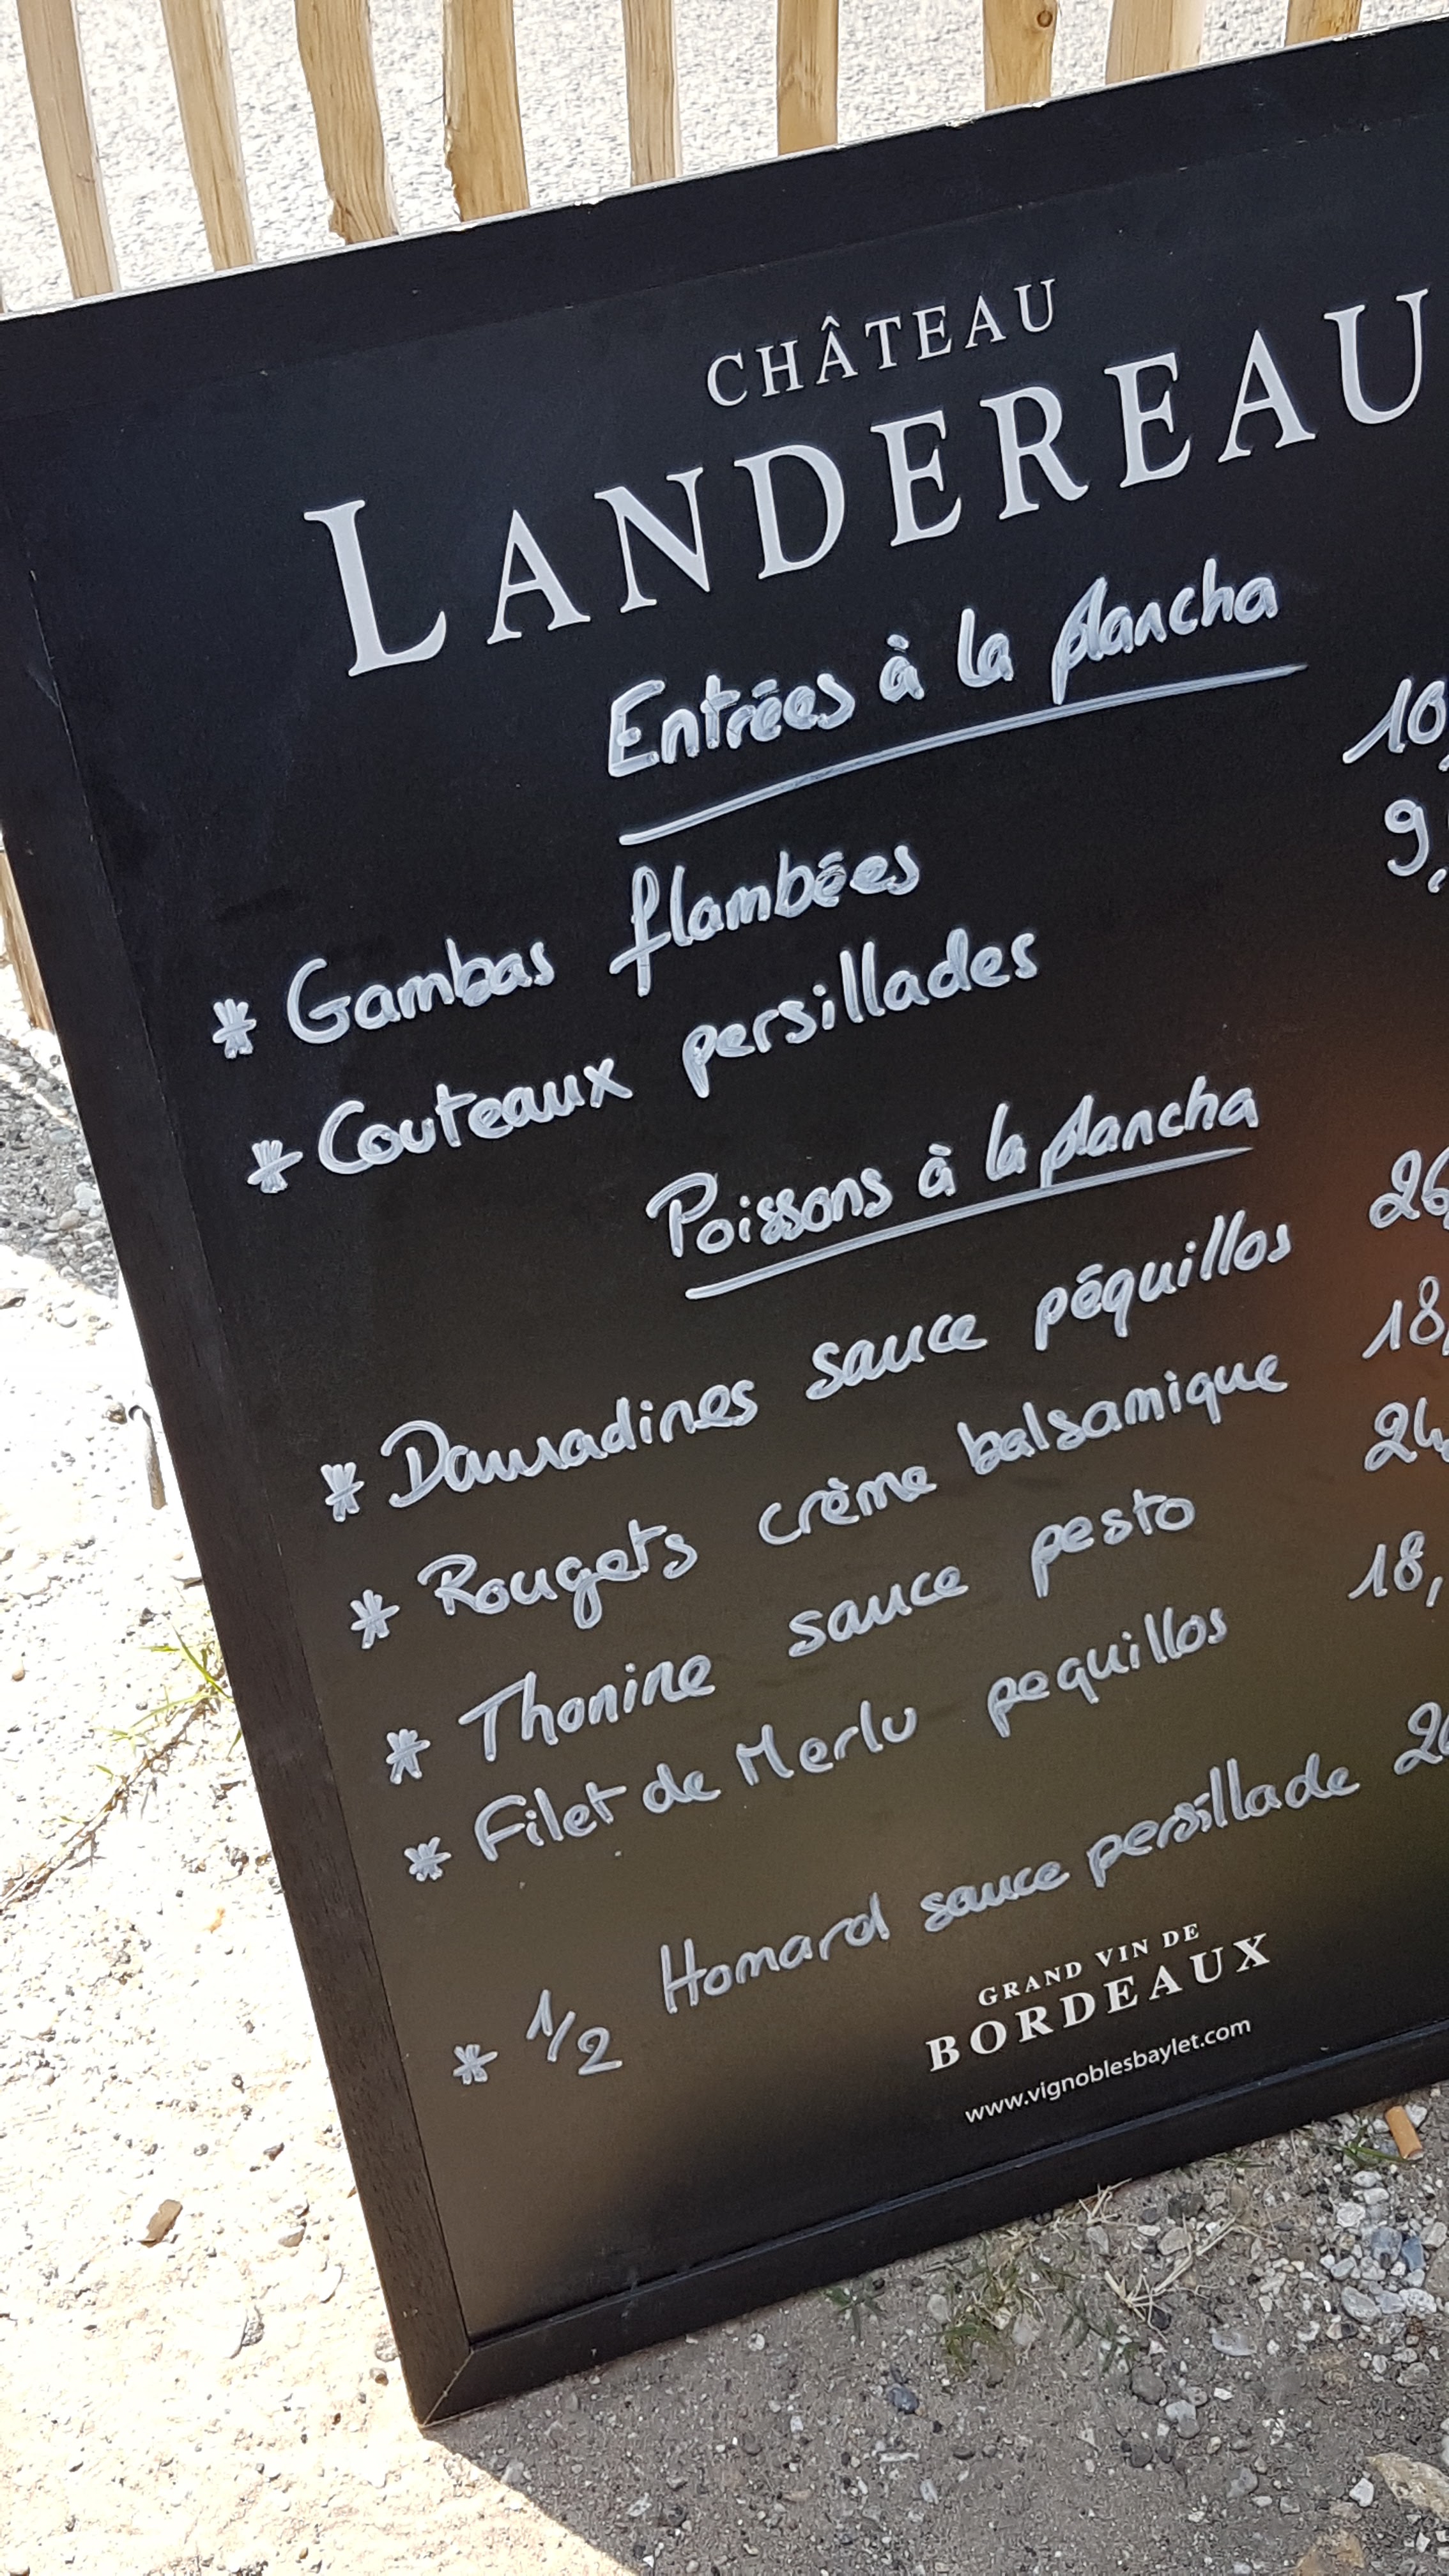 CHÂTEAU
LANDEREAU
Entrées à la plancha
* Gambas flambées 10,
* Couteaux persillades 9,
Poissons à la plancha
* Dauradines sauce péquillos 26
* Rougets crème balsamique 18,
* Thonine sauce pesto 24
* Filet de Merlu pequillos 18,
* 1/2 Homard sauce persillade
GRAND VIN DE
BORDEAUX
www.vignoblesbaylet.com